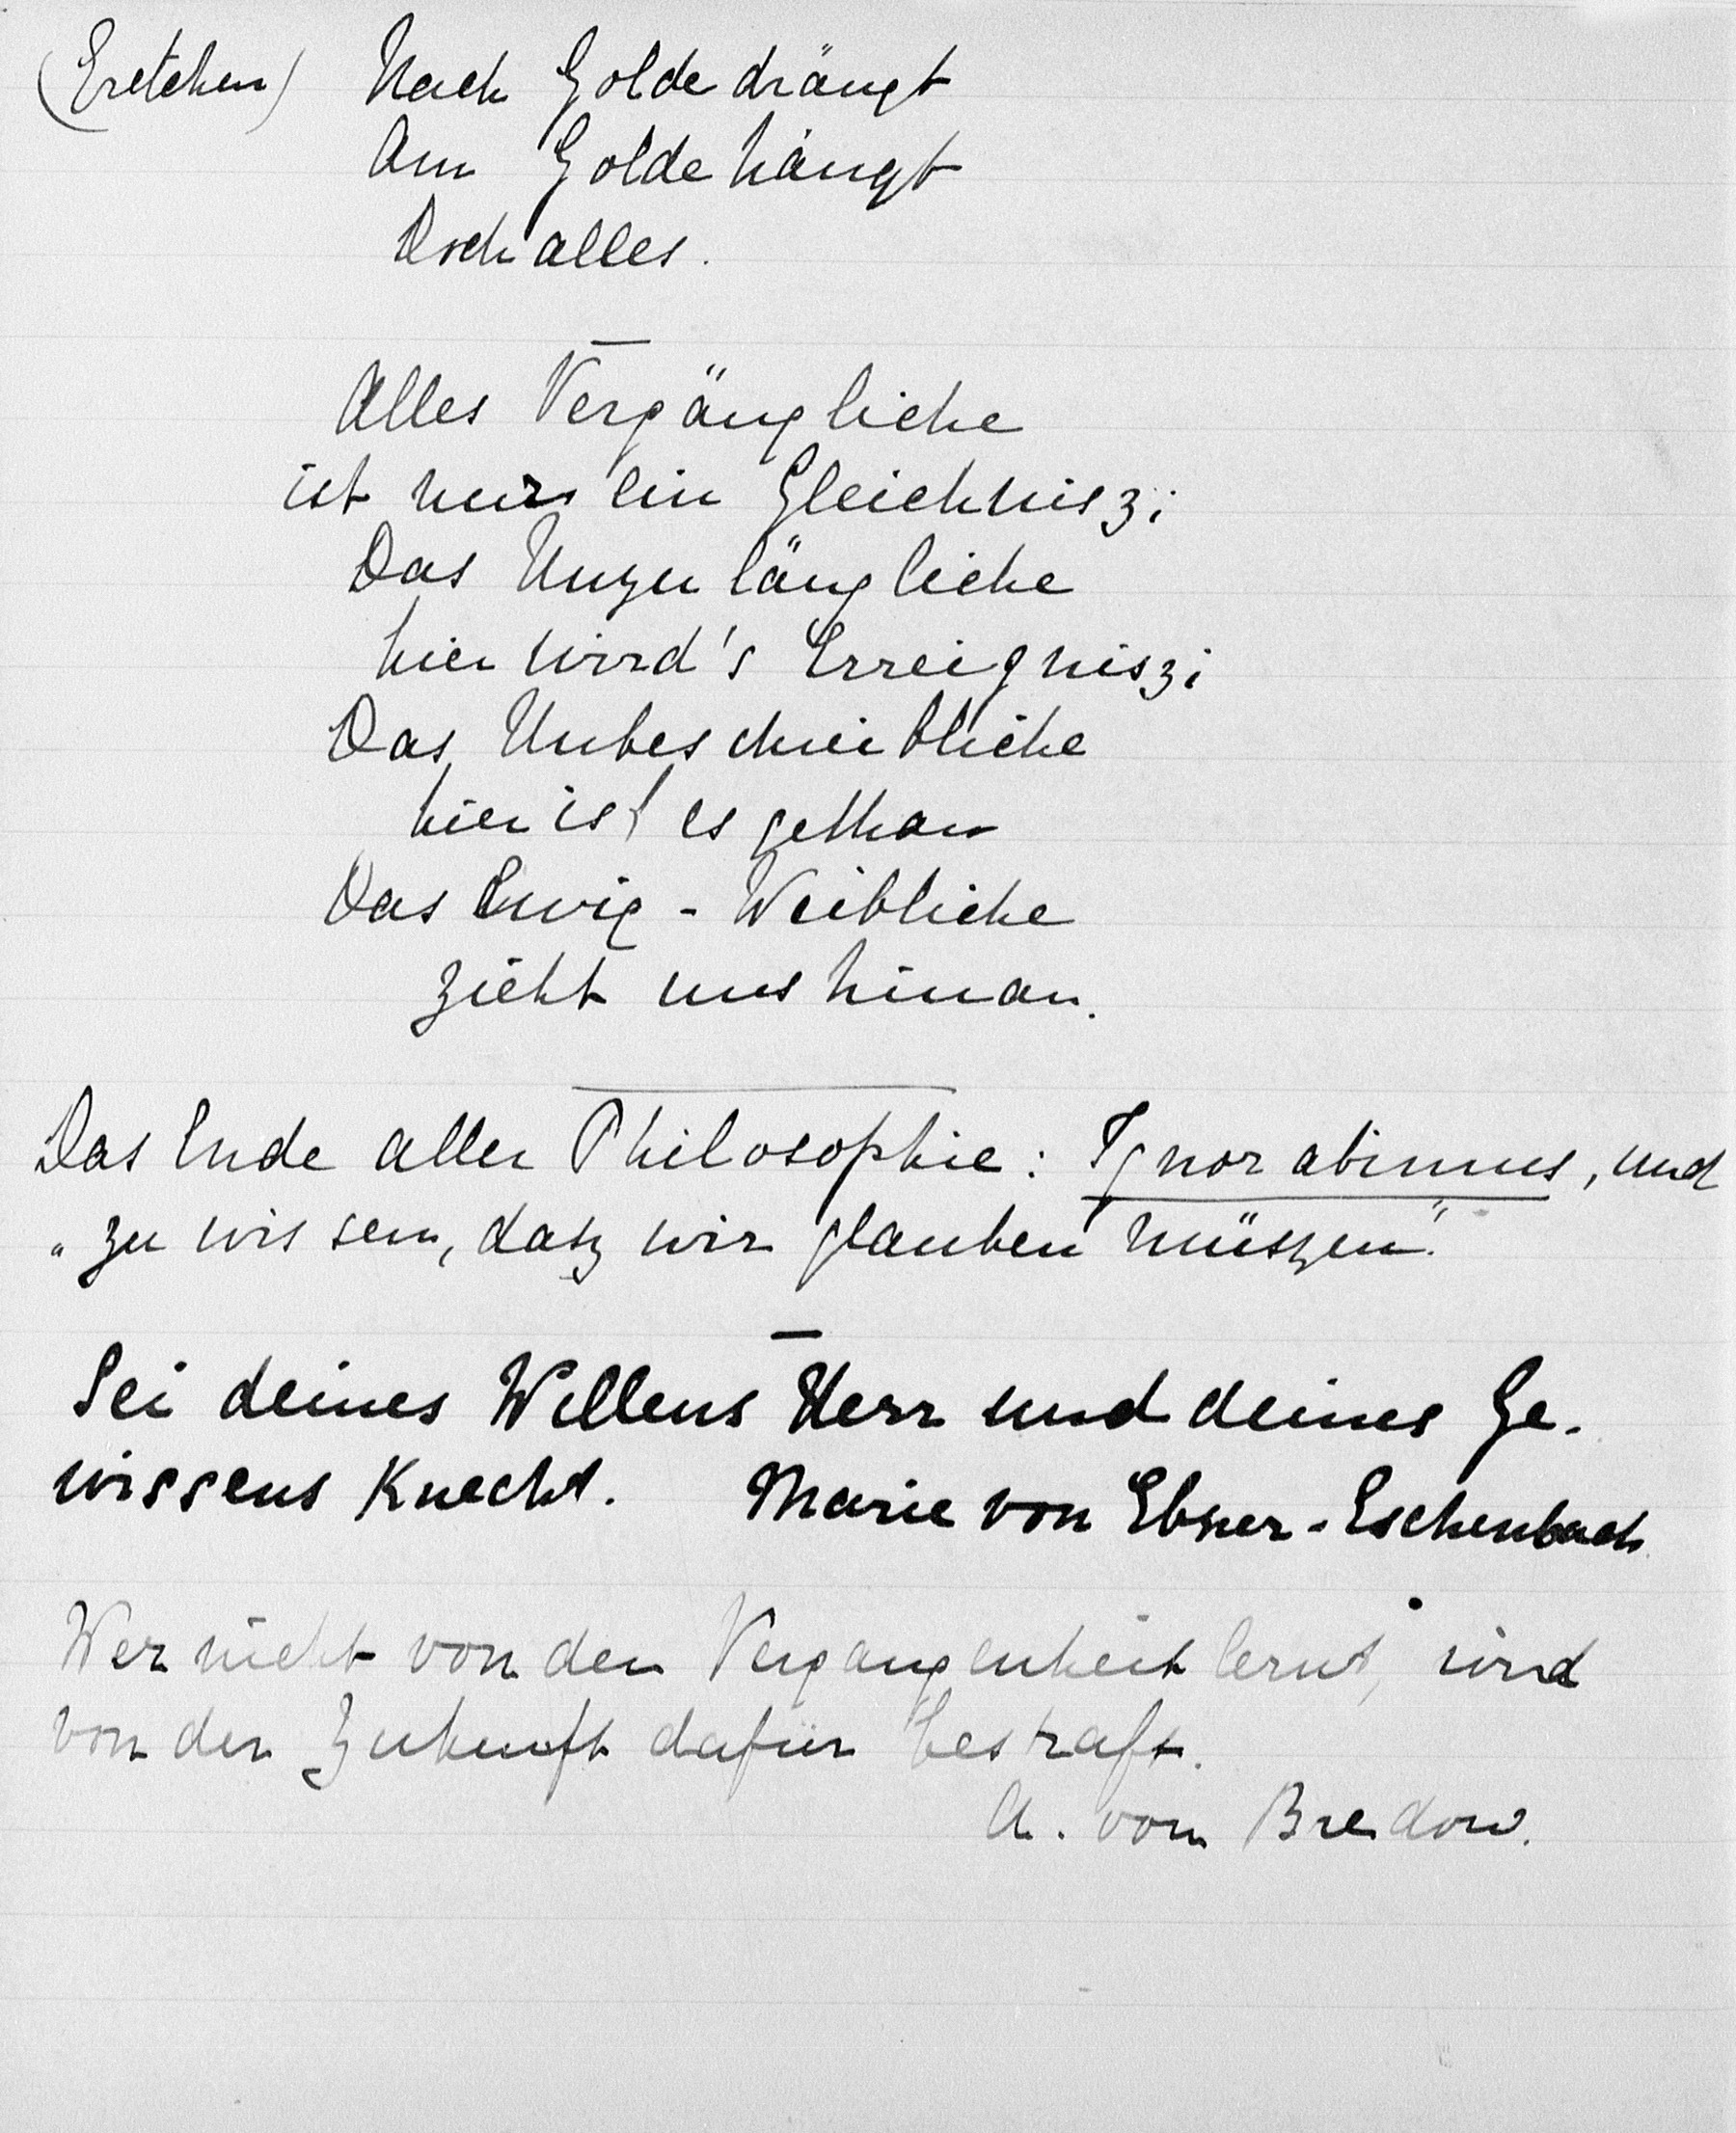 (Gretchen) Nach Golde drängt
Am Golde hängt
Doch alles.
Alles Vergängliche
ist nur ein Gleichnisz;
Das Unzulängliche
hier wird's Erreignisz;
Das Unbeschreibliche
hier ist es gethan
Das Ewig-Weibliche
zieht uns hinan.
Das Ende aller Philosophie: Ignorabimus, und
„zu wissen, dasz wir glauben müszen."
Sei deines Willens Herr und deines Ge-
wissens Knecht. Marie von Ebner-Eschenbach
Wer nicht von der Vergangenheit lernt, wird
von der Zukunft dafür bestraft.
A. von Bredow.